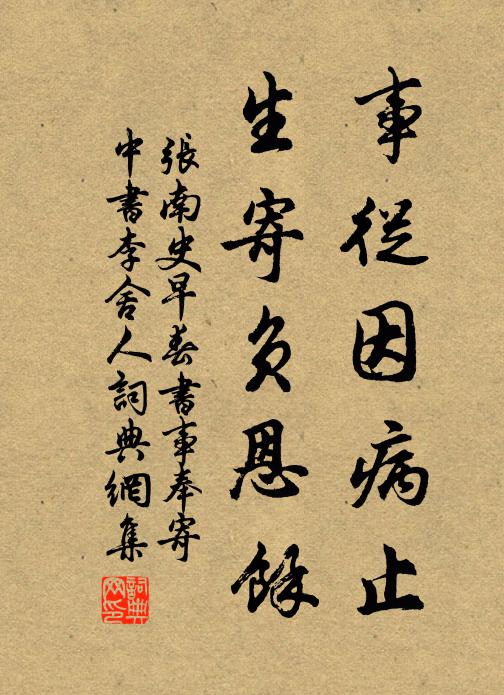 事從因病止
生寄負恩餘
張南史早春書事奉寄
中書李舍人詞典網集
詞典网印